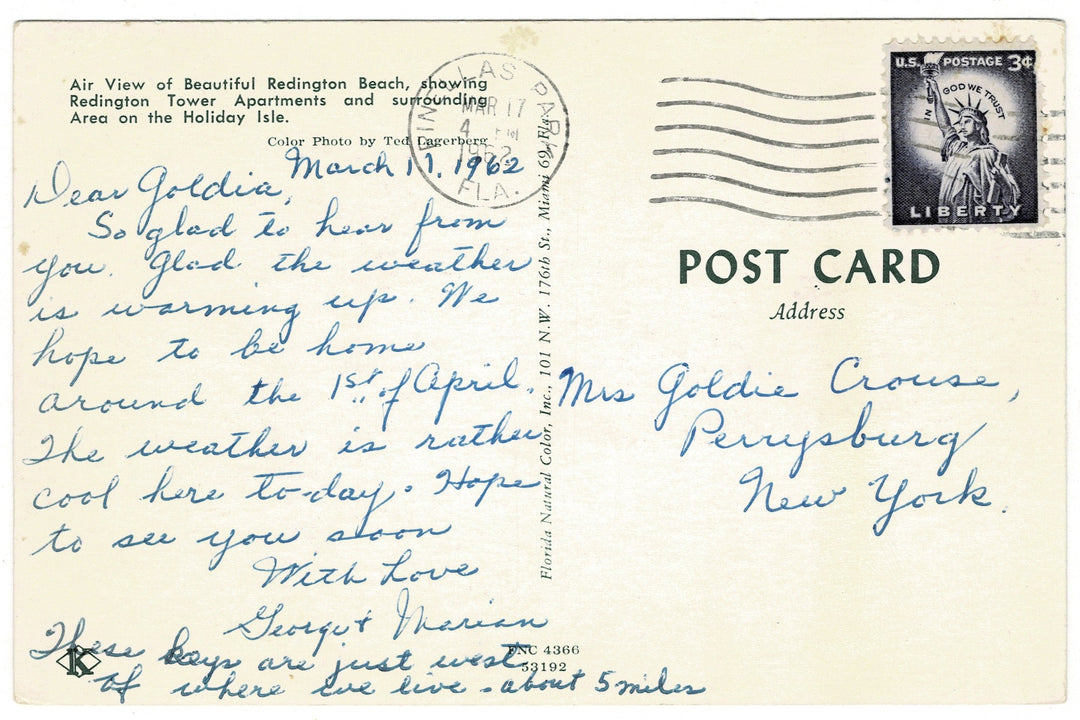 Air View of Beautiful Redington Beach, showing
Redington Tower Apartments and surrounding
Area on the Holiday Isle.
Color Photo by Ted Lagerberg
PINELLAS PARK
MAR 17
4 PM
1962
FLA.
U.S. POSTAGE 3¢
IN GOD WE TRUST
LIBERTY
March 17, 1962
Dear Goldia,
So glad to hear from
you. Glad the weather
is warming up. We
hope to be home
around the 1st of April.
The weather is rather
cool here to-day. Hope
to see you soon
With Love
George & Marian
These keys are just west
of where we live - about 5 miles
K
FNC 4366
53192
Florida Natural Color, Inc., 101 N.W. 176th St., Miami 69, Fla.
POST CARD
Address
Mrs Goldie Crouse,
Perrysburg
New York.